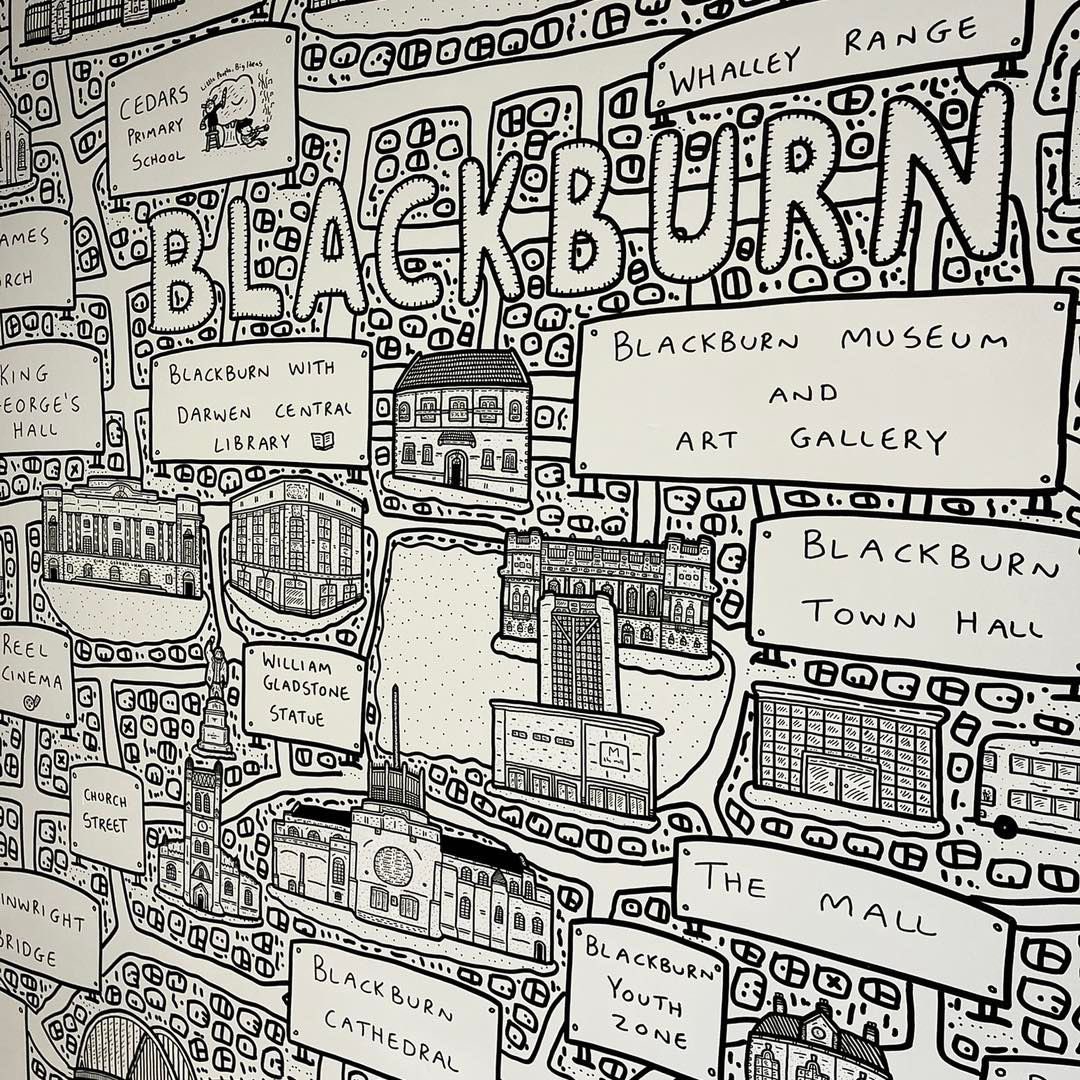 WHALLEY RANGE
CEDARS
PRIMARY
SCHOOL
Little People, Big Ideas
BLACKBURN
AMES
RCH
KING
EORGE'S
HALL
BLACKBURN WITH
DARWEN CENTRAL
LIBRARY
BLACKBURN MUSEUM
AND
ART GALLERY
BLACKBURN
TOWN HALL
REEL
CINEMA
WILLIAM
GLADSTONE
STATUE
M
CHURCH
STREET
THE MALL
INWRIGHT
BRIDGE
BLACKBURN
CATHEDRAL
BLACKBURN
YOUTH
ZONE